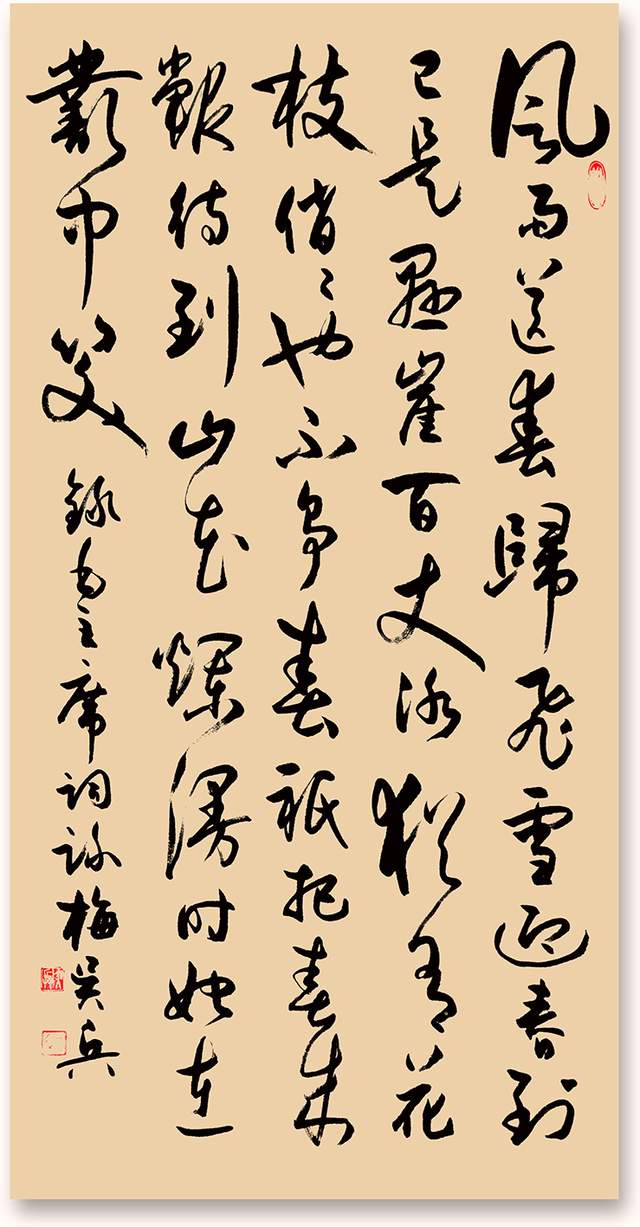 風雨送春歸飛雪迎春到
已是懸崖百丈冰猶有花
枝俏〻也不爭春祇把春來
報待到山花爛漫時她在
叢中笑 錄毛主席詞詠梅吳兵